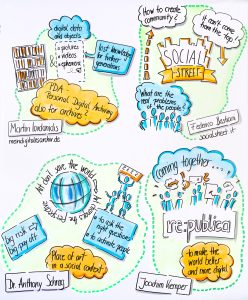 digital data and objects
pictures
videos
&
lost knowledge
for further
generations
PDA
Personal Digital Archiving
also for archives!
Martin Iordanidis
meindigitalesarchiv.de
How to create
community?
It can't come
from the top
SOCIAL
STREET
What are the
real problems
of the people?
Federico Bastiani
socialstreet.it
Art can't save the world
the perspective
to ask the
right questions
to activate people
big risk
big pay off
Place of art
in a social context
Dr. Anthony Schrag
coming together...
re:publica
to make the
world better
and more digital
Joachim Kemper